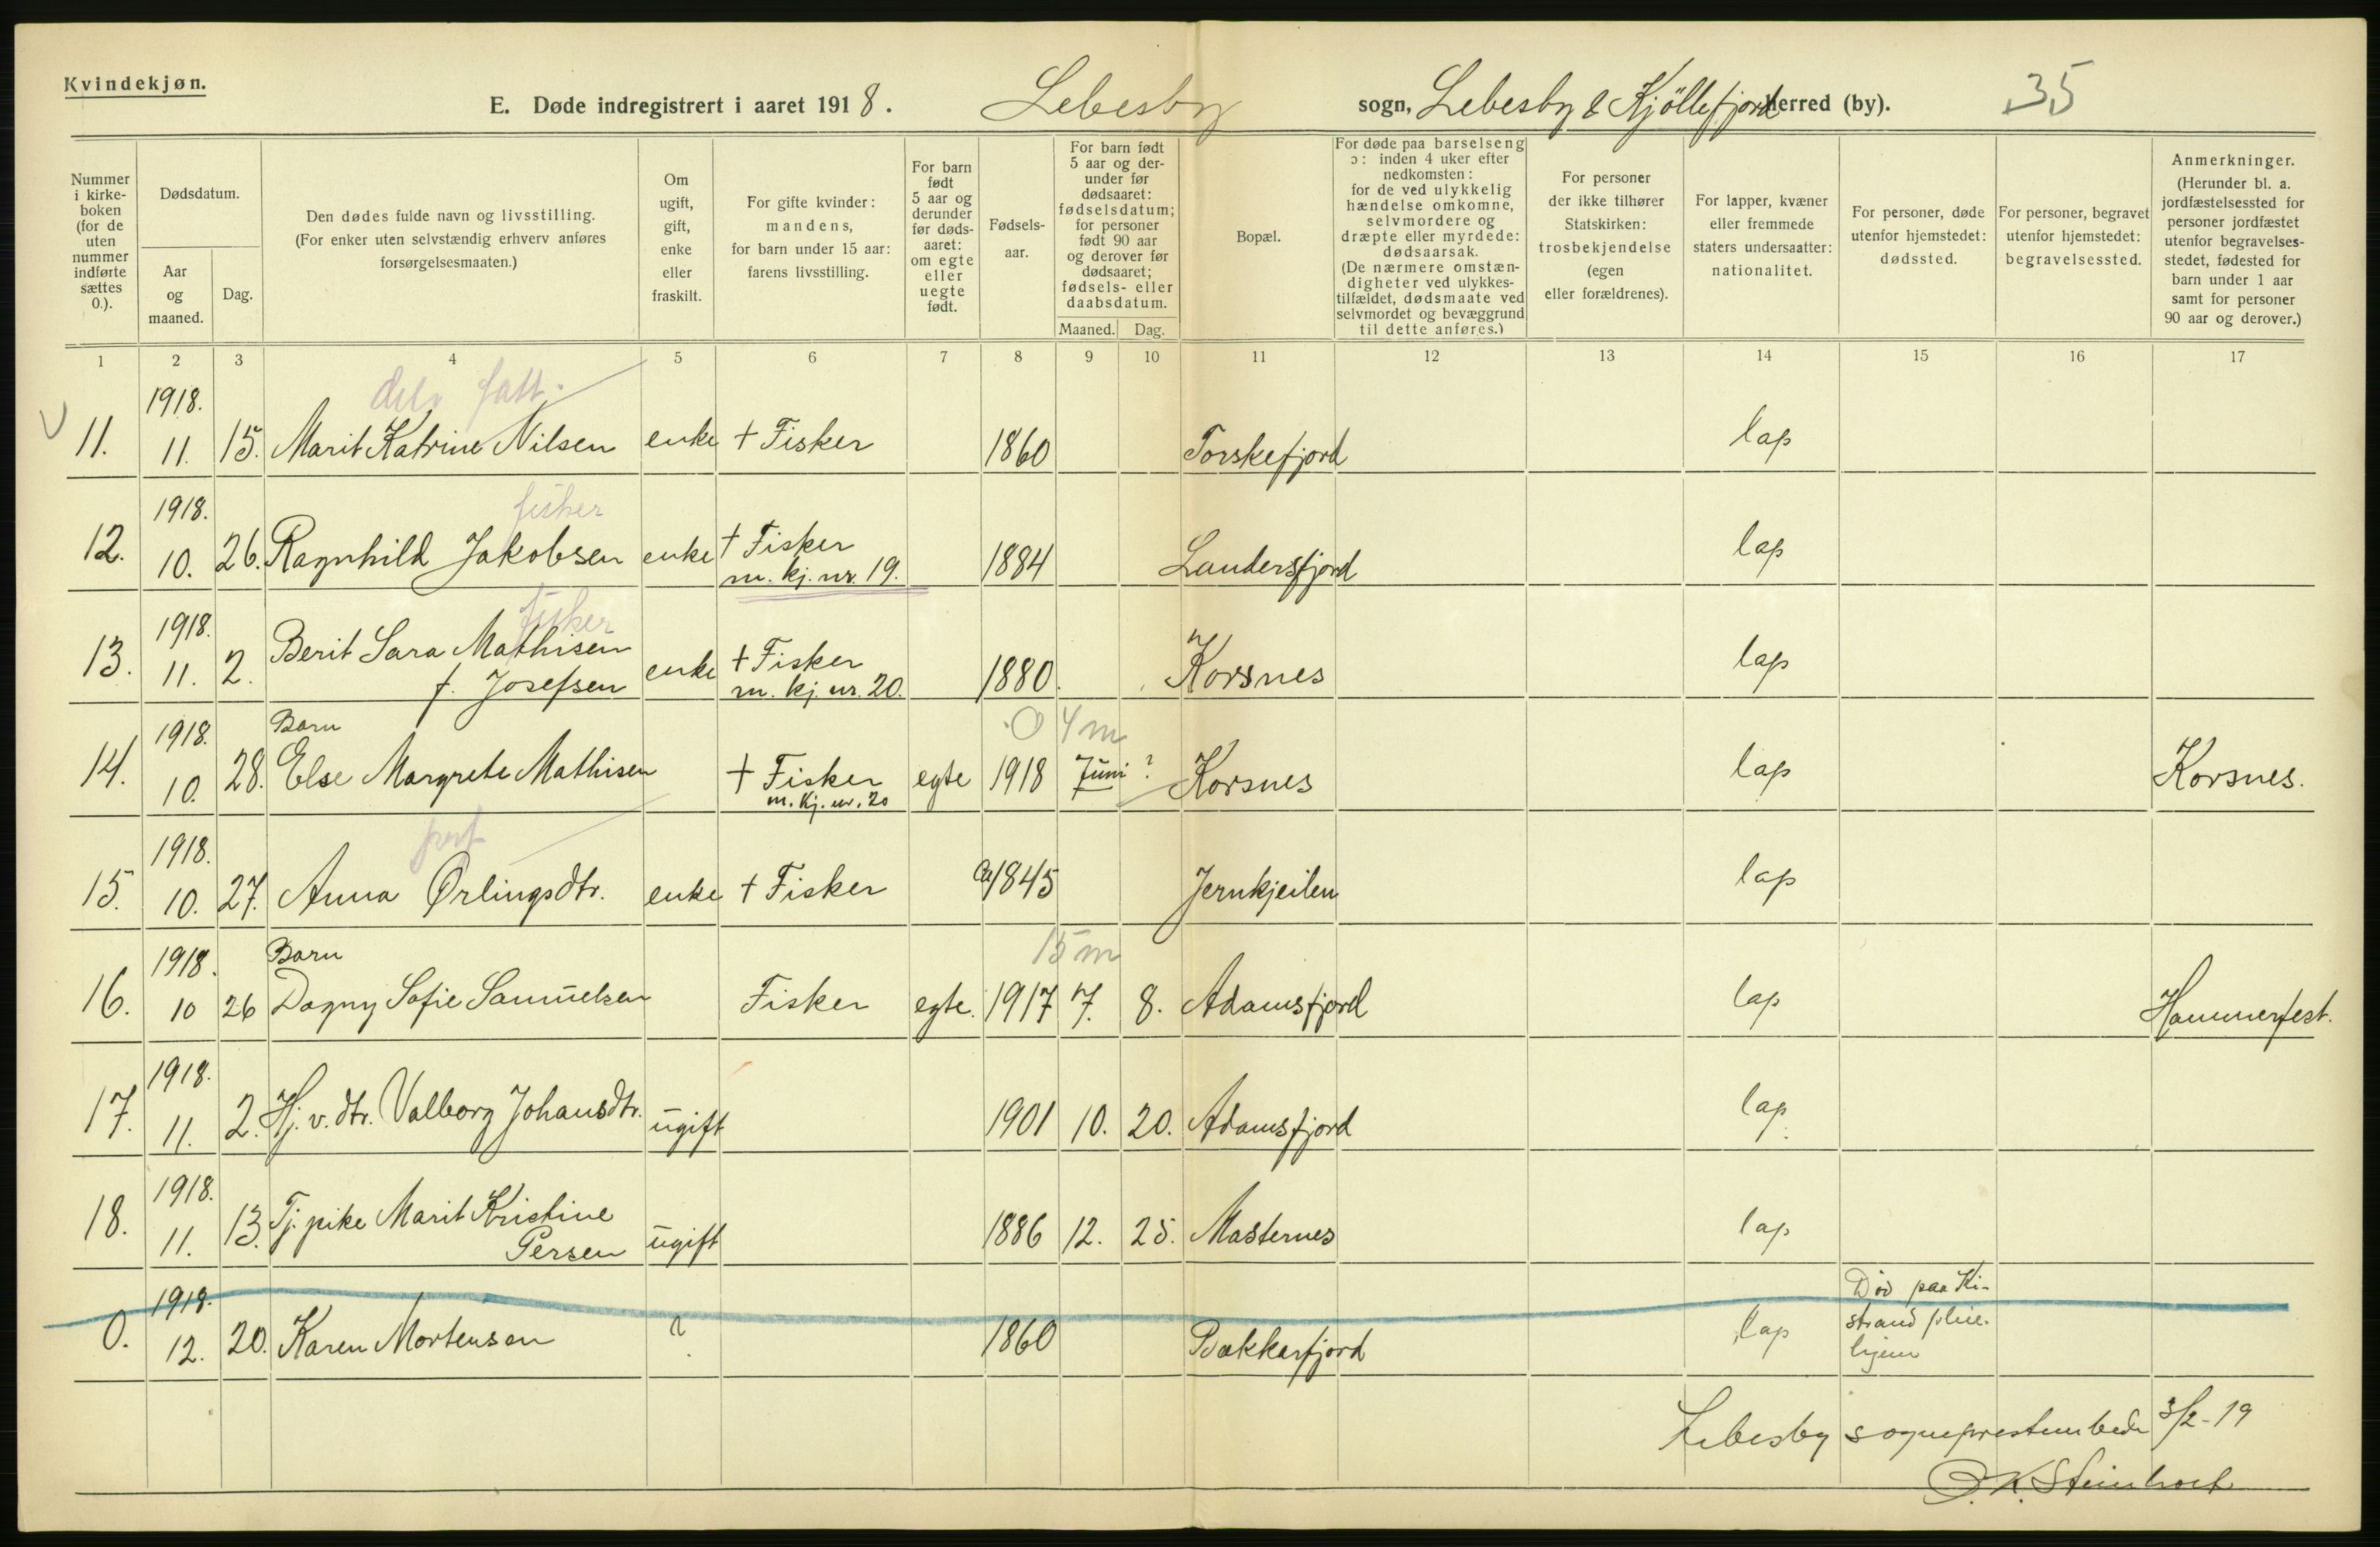 Kvindekjøn.
E. Døde indregistrert i aaret 1918. Lebesby sogn, Lebesby & Kjöllefjord herred (by). 35
Nummer i kirkeboken (for de uten nummer indførte sættes 0.).
Dødsdatum.
Aar og maaned.
Dag.
Den dødes fulde navn og livsstilling.
(For enker uten selvstændig erhverv anføres
forsørgelsesmaaten.)
Om ugift, gift, enke eller fraskilt.
For gifte kvinder: mandens, for barn under 15 aar: farens livsstilling.
For barn født 5 aar og derunder før dødsaaret: om egte eller uegte født.
Fødselsaar.
For barn født 5 aar og derunder før dødsaaret: fødselsdatum; for personer født 90 aar og derover før dødsaaret; fødsels- eller daabsdatum.
Maaned. Dag.
Bopæl.
For døde paa barselseng ɔ: inden 4 uker efter nedkomsten: for de ved ulykkelig hændelse omkomne, selvmordere og dræpte eller myrdede: dødsaarsak. (De nærmere omstændigheter ved ulykkestilfældet, dødsmaate ved selvmordet og bevæggrund til dette anføres.)
For personer der ikke tilhører Statskirken: trosbekjendelse (egen eller forældrenes).
For lapper, kvæner eller fremmede staters undersaatter: nationalitet.
For personer, døde utenfor hjemstedet: dødssted.
For personer, begravet utenfor hjemstedet: begravelsessted.
Anmerkninger. (Herunder bl. a. jordfæstelsessted for personer jordfæstet utenfor begravelsesstedet, fødested for barn under 1 aar samt for personer 90 aar og derover.)
1 2 3 4 5 6 7 8 9 10 11 12 13 14 15 16 17
1918.
11. 11. 15. Marit Katrine Nilsen enke + Fisker 1860 Torskefjord lap
1918. fisker
12. 10. 26. Ragnhild Jakobsen enke + Fisker 1884 Landersfjord lap
m. kj. nr. 19.
1918. fisker
13. 11. 2. Berit Sara Mathisen enke + Fisker 1880. Korsnes lap
f. Josefsen m. kj. nr. 20.
1918. Barn 0 4 m
14. 10. 28. Else Margrete Mathisen + Fisker egte 1918 Juni ? Korsnes lap Korsnes.
m. kj. nr. 20
1918.
15. 10. 27. Anna Ørlingsdtr. enke + Fisker Ca 1845 Jernkjeilen lap
1918. Barn 15 m
16. 10 26 Dagny Sofie Samuelsen Fisker egte. 1917 7. 8. Adamsfjord lap Hammerfest.
1918.
17. 11. 2. Hj. v. dtr. Valborg Johansdtr. ugift 1901 10. 20. Adamsfjord lap.
1918.
18. 11. 13. Tj. pike Marit Kristine ugift 1886 12. 25. Masternes lap
Persen
1918. Död paa Ki-
0. 12. 20. Karen Mortensen ? 1860 Bakkarfjord lap strand pleie-
hjem
Lebesby sogneprestembede 3/2-19